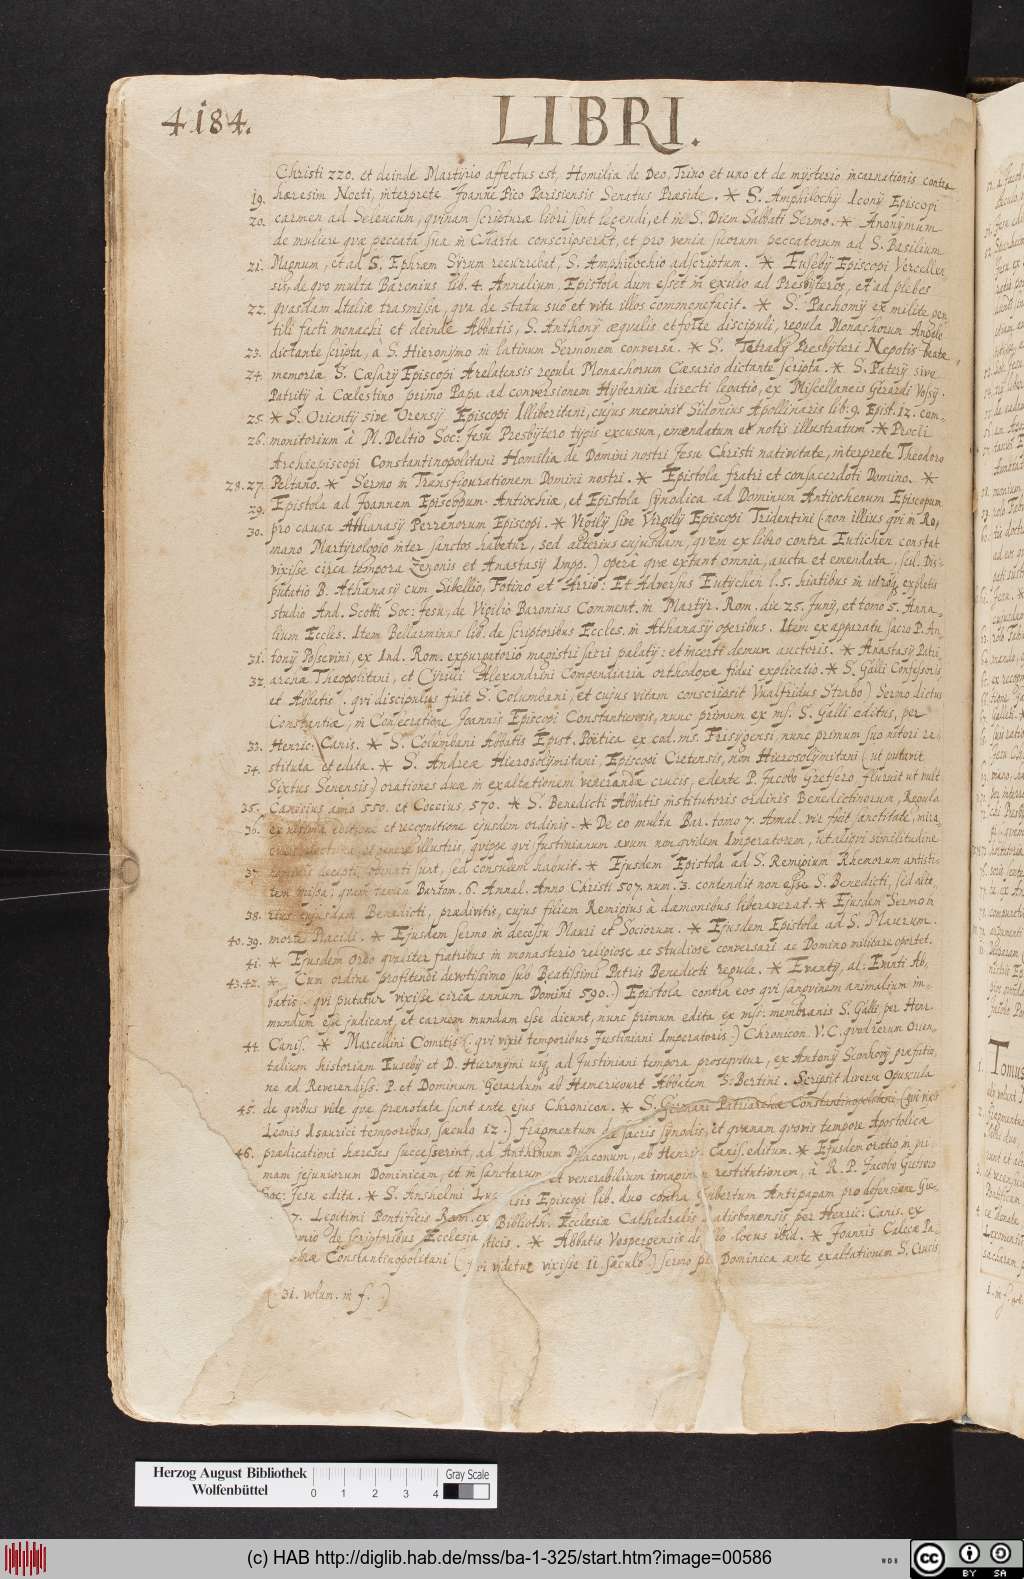 4184.
LIBRI.
Christi 220. et deinde Martyrio affectus est, Homilia de Deo, Trino et uno et de mysterio incarnationis contra
19. hæresim Nocti, interprete Joanne Pico Parisiensis Senatus Præside. * S. Amphilochij Iconij Episcopi
20. carmen ad Seleucum, quinam scripturæ libri sint legendi, et in S. Diem Sabbati Sermo. * Anonymum
de muliere quæ peccata sua in Charta conscripserat, et pro venia suorum peccatorum ad S. Basilium
21. Magnum, et ad S. Ephræm Syrum recurrebat, S. Amphilochio adscriptum. * Eusebij Episcopi Vercellen
sis, de quo multa Baronius lib. 4. Annalium Epistola dum esset in exilio ad Presbyteros, et ad plebes
22. quasdam Italiæ trasmissa, qua de statu suo et vita illos commonefacit. * S. Pachomij ex milite gen
tili facti monachi et deinde Abbatis, S. Anthonij æqualis et forte discipuli, regula Monachorum Angelo
23. dictante scripta, à S. Hieronymo in latinum Sermonem conversa. * S. Tetradij Presbyteri Nepotis beatæ
24. memoriæ S. Cæsarij Episcopi Arelatensis regula Monachorum Cæsario dictante scripta. * S. Paterij sive
Patritij à Cœlestino primo Papa ad conversionem Hyberniæ directi legatio, ex Miscellaneis Gerardi Vossij.
25. * S. Orientij sive Orensij Episcopi Illiberitani, cujus meminit Sidonius Apollinaris lib. 9. Epist. 12. com-
26. monitorium à M. Deltio Soc: Jesu Presbytero typis excusum, emendatum et notis illustratum. * Procli
Archiepiscopi Constantinopolitani Homilia de Domini nostri Jesu Christi nativitate, interprete Theodoro
28. 27. Peltano. * Sermo in Transfigurationem Domini nostri. * Epistola fratri et consacerdoti Domino. *
29. Epistola ad Joannem Episcopum Antiochiæ, et Epistola synodica ad Dominum Antiochenum Episcopum
30. pro causa Athanasij Perrenorum Episcopi. * Vigilij sive Virgilij Episcopi Tridentini (non illius qui in Ro,
mano Martyrologio inter sanctos habetur, sed alterius cujusdam, quem ex libro contra Eutichen constat
vixisse circa tempora Zenonis et Anastasij Impp.) opera quæ extant omnia, aucta et emendata, scil. Dis-
putatio B. Athanasij cum Sibellio, Fotino et Arrio: Et Adversus Eutychen l. 5. hiatibus in utroq expletis
studio And. Scotti Soc: Jesu, de Vigilio Baronius Comment. in Martyr. Rom. die 25. Junij, et tomo 5. Anna-
lium Eccles. Item Bellarminus lib. de scriptoribus Eccles. in Athanasij operibus. Item ex apparatu sacro P. An,
31. tonij Possevini, ex Ind. Rom. expurgatorio magistri sacri palatij: et incerti demum auctoris. * Anastasij Patri
32. archæ Theopolitani, et Cyrilli Alexandrini Compendiaria orthodoxæ fidei explicatio. * S. Galli Confessoris
et Abbatis (. qui discipulus fuit S. Columbani, et cujus vitam conscripsit Vualfridus Strabo) Sermo dictus
Constantiæ, in Consecratione Joannis Episcopi Constantiensis, nunc primum ex ms. S. Galli editus, per
33. Henric: Canis. * S. Columbani Abbatis Epist. Poëtica ex cod. ms. Frisygensi nunc primum suo nitori re-
34. stituta et edita. * S. Andreæ Hierosolymitani, Episcopi Cretensis, non Hierosolymitani (ut putavit
Sixtus Senensis) orationes duæ in exaltationem venerandæ crucis, edente P. Jacobo Gretsero, floruit ut vult
35. Canisius anno 550. et Coccius, 570. * S. Benedicti Abbatis institutoris ordinis Benedictinorum, Regula
36. ex nitima editione et recognitione ejusdem ordinis. * De eo multa Bar. tomo 7. Annal. vir fuit sanctitate, mira
illustris, quippe qui Justinianum avum non quidem Imperatorem, ut aliqui similitudine
37. nominis decepti, opinati sunt, sed consulem habuit. * Ejusdem Epistola ad S. Remigium Rhemorum antisti-
tem missa, quam tamen Barton. 6. Annal. Anno Christi 507. num. 3. contendit non esse S. Benedicti, sed alte
38. rius cujusdam Benedicti, prædivitis, cujus filiam Remigius à dæmonibus liberaverat. * Ejusdem Sermo in
40. 39. morte Placidi. * Ejusdem sermo in decessu Mauri et Sociorum. * Ejusdem Epistola ad S. Maurum.
41. * Ejusdem Ordo qualiter fratribus in monasterio religiose ac studiose conversari ac Domino militare oportet.
43. 42. * Cum ordine profitendi devotissimo sub Beatissimi Patris Benedicti regula. * Evantij, al: Evinti Ab,
batis (. qui putatur vixisse circa annum Domini 590.) Epistola contra eos qui sanguinem animalium im-
mundum esse judicant, et carnem mundam esse dicunt, nunc primum edita ex mss. membranis S. Galli, per Henr.
44. Canis. * Marcellini Comitis (. qui vixit temporibus Justiniani Imperatoris.) Chronicon V. C. quod rerum Orien-
talium historiam Eusebij et D. Hieronymi usq ad Justiniani tempora prosequitur, ex Antonij Sconhovij præfatio,
ne ad Reverendiss. P. et Dominum Gerardum ab Hamericourt Abbatem S. Bertini. Scripsit diversa Opuscula
45. de quibus vide quæ prænotata sunt ante ejus Chronicon. * S. Germani Patriarchæ Constantinopolitani (qui vixit
Leonis Isaurici temporibus, sæculo 12.) fragmentum de sacris synodis, et quænam quovis tempore Apostolicæ
46. prædicationi hæreses successerint, ad Anthimum Diaconum, ab Henric: Canis. editum. * Ejusdem oratio in pri
mam jejuniorum Dominicam, et in sanctarum et venerabilium imaginum restitutionem, à R. P. Jacobo Gretsero
Soc: Jesu edita. * S. Anselmi Luc sis Episcopi lib. duo contra Guibertum Antipapam pro defensione Gre-
7. Legitimi Pontificis Rom. ex Biblioth. Ecclesiæ Cathedralis atisbonensis per Henric: Canis. ex
mio de scriptoribus Ecclesia ticis. * Abbatis Vespergensis de llo locus ibid. * Joannis Calecæ Pa-
chæ Constantinopolitani (qui videtur vixisse 11. sæculo) sermo pr Dominica ante exaltationem S. Crucis
( 31. volum. in f. )
Tomus
Herzog August Bibliothek
Wolfenbüttel
0 1 2 3 4
Gray Scale
(c) HAB http://diglib.hab.de/mss/ba-1-325/start.htm?image=00586
WDB
cc BY SA